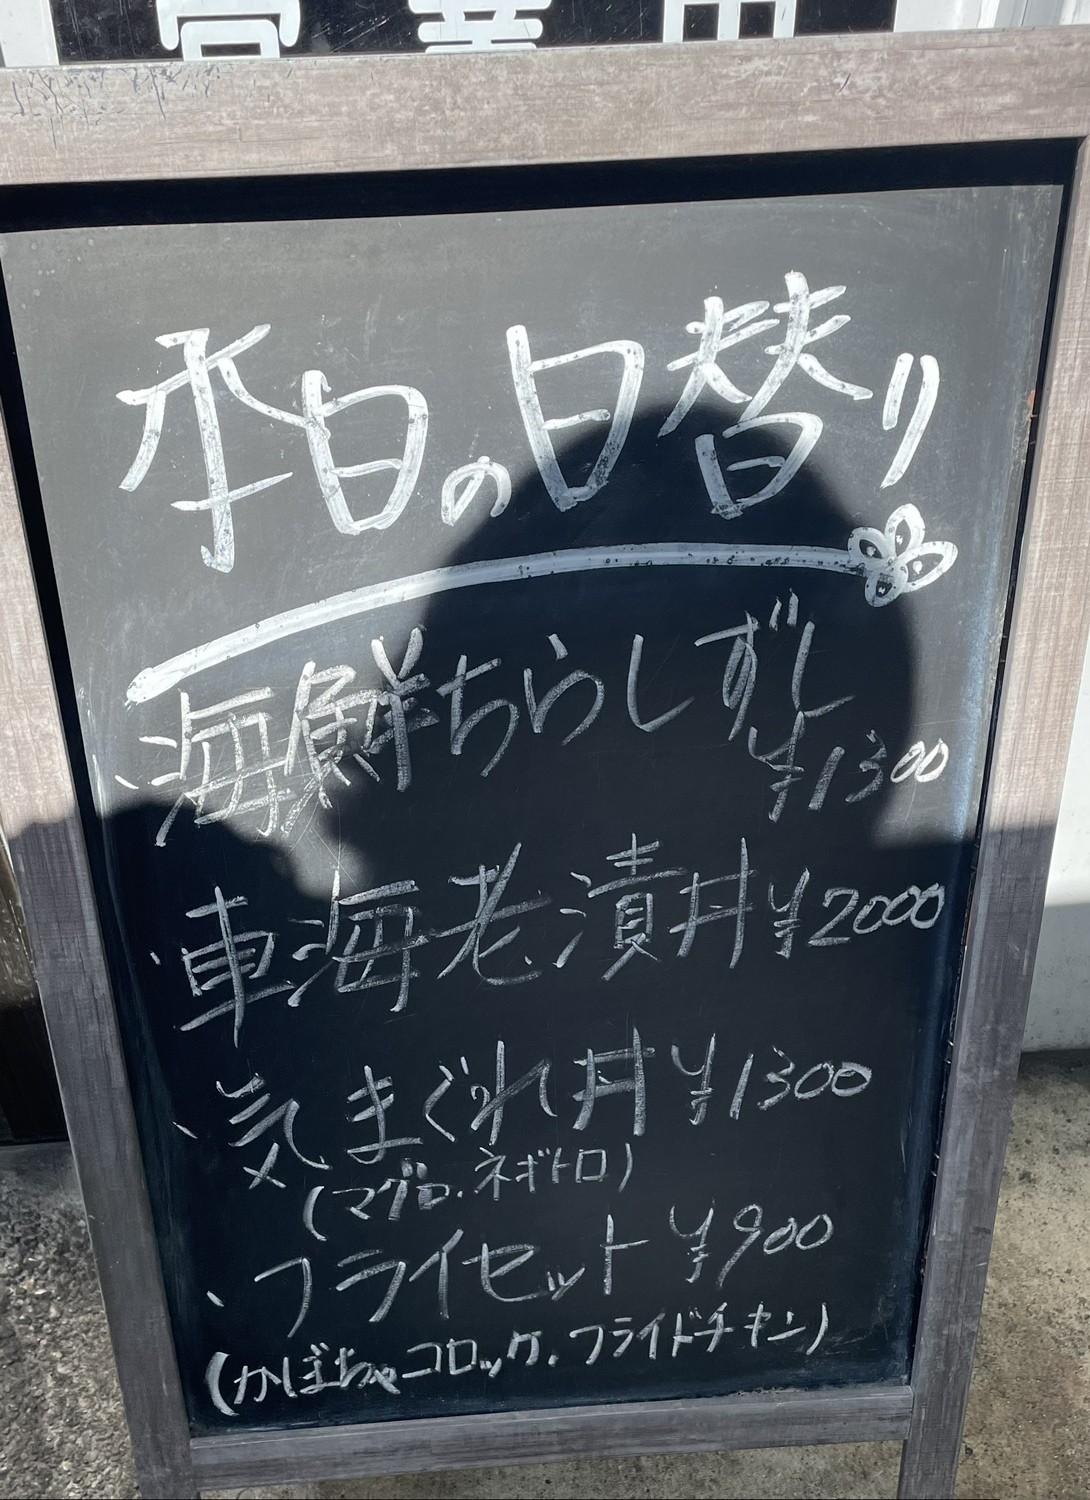 営業中
平日の日替り
・海鮮ちらしずし
¥1300
・車海老漬丼¥2000
・気まぐれ丼¥1300
(マグロ、ネギトロ)
・フライセット¥900
(かぼちゃコロッケ、フライドチキン)